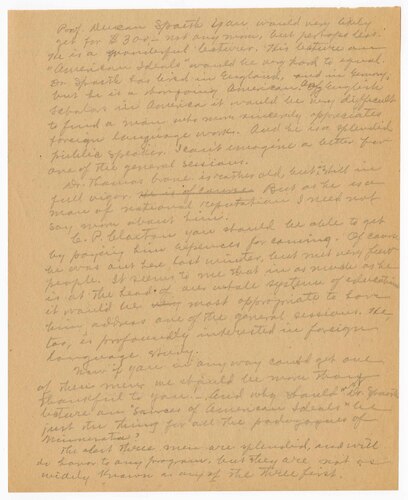 Prof. Duncan Spaeth you would very likely
get for $300 – not any more, but perhaps less.
He is a wonderful lecturer. His lecture on
"American Ideals" would be very hard to equal.
Dr. Spaeth has lived in England, and in
but he is a thorough American. Of English
scholars in America it would be very difficult
to find a man who more sincerely appreciates
foreign language work. And he is a splendid
public speaker. I can't imagine a better for
one of the general sessions.
Dr. Thomas is rather old, but still in
full vigor. But as he is a
man of national reputation I need not
say more about him.
C. P. Claxton you should be able to get
by paying him expenses for coming. Of course
he was out here last winter, but met very few
people. It seems to me that in as much as he
is at the head of our whole system of education
it would be most appropriate to have
him address one of the general sessions. He
too, is profoundly interested in foreign
language study.
Now if you in anyway could get one
of these men we should be more than
thankful to you. – And why should "Dr. Spaeth
lecture on "Sources of American Ideals" be
just the thing for all the pedagogues of
Minnesota?
The last three men are splendid, and will
do honor to any program, but they are not as
widely known as any of the three first.